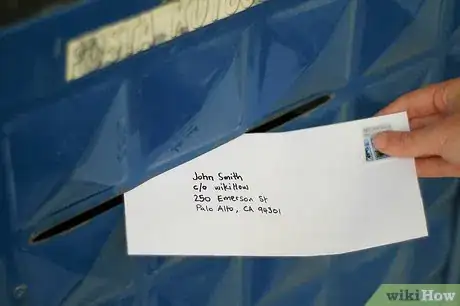 John Smith
c/o wikiHow
250 Emerson St
Palo Alto, CA 94301
wikiHow